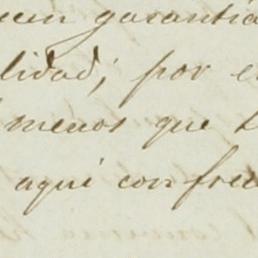 garantía
lidad; por e
menos que
aquí con frec